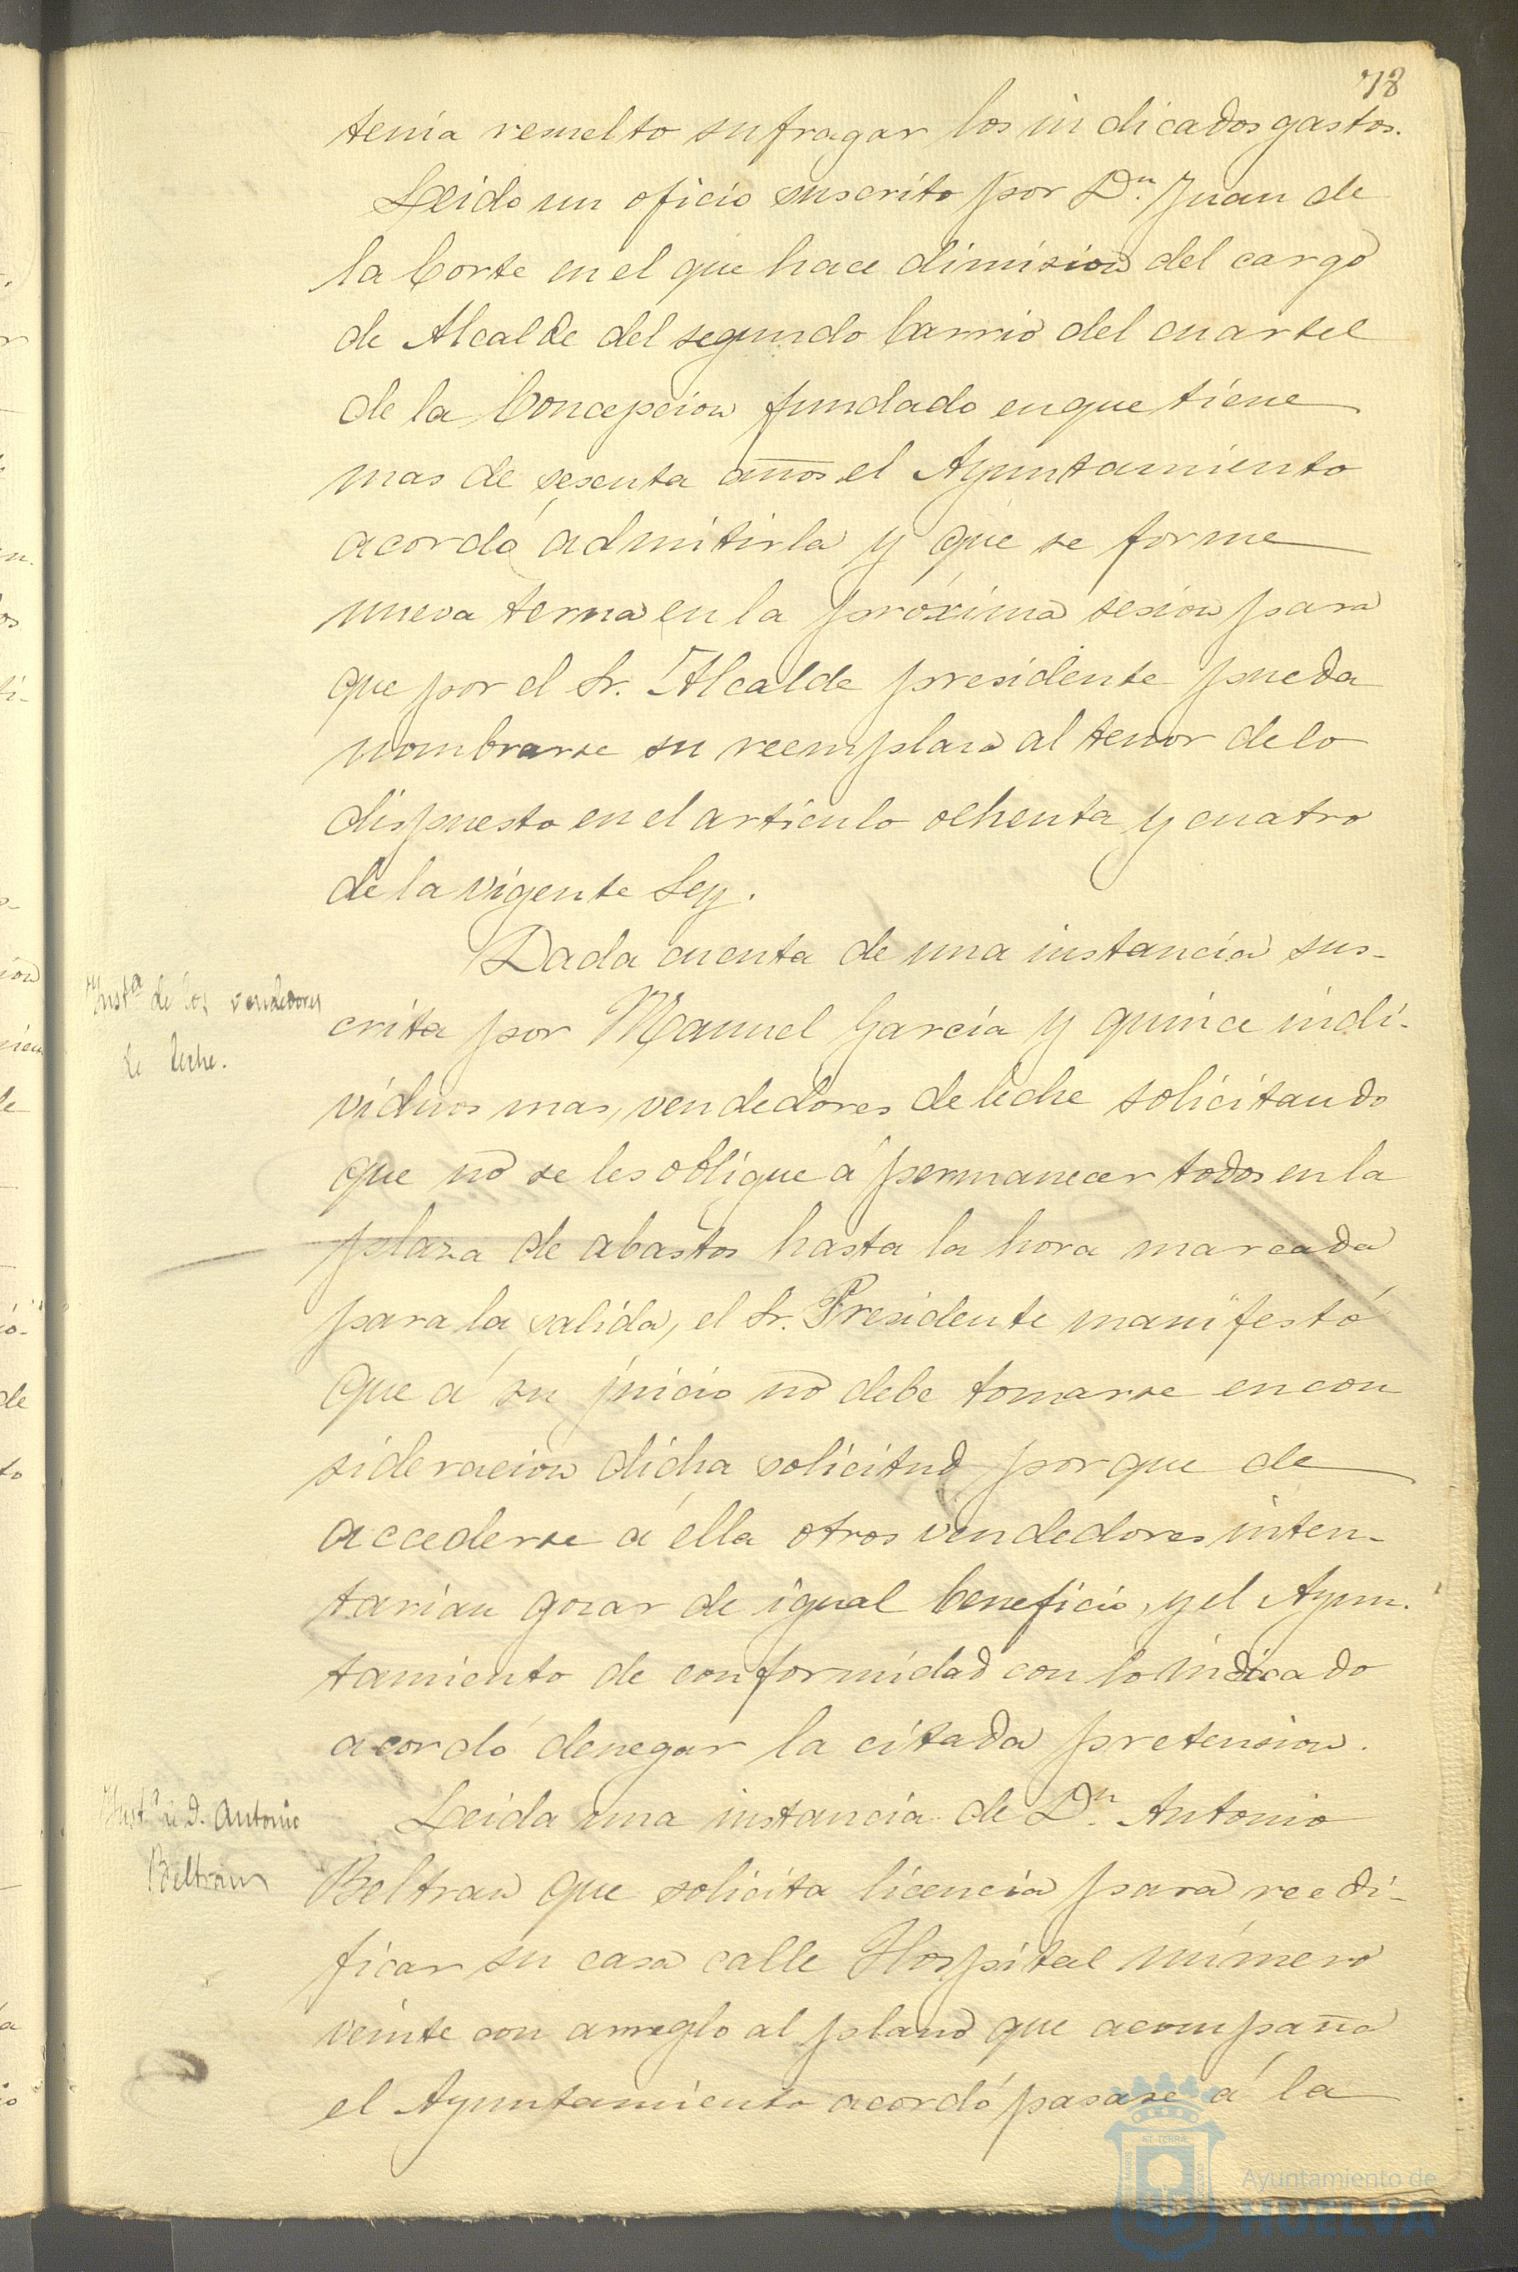 78
tenia resuelto sufragar los indicados gastos.
Leido un oficio suscrito por Dn. Juan de
la Corte en el que hace dimision del cargo
de Alcalde del segundo barrio del cuartel
de la Concepcion fundado en que tiene
mas de sesenta años el Ayuntamiento
acordó admitirla y que se forme
nueva terna en la próxima sesion para
que por el Sr. Alcalde presidente pueda
nombrarse su reemplazo al tenor de lo
dispuesto en el artículo ochenta y cuatro
de la vigente Ley.
Dada cuenta de una instancia sus-
Insta de los vendedores
crita por Manuel García y quince indi-
de leche.
viduos mas, vendedores de leche solicitando
que no se les obligue á permanecer todos en la
plaza de abastos hasta la hora marcada
para la salida, el Sr. Presidente manifestó
que á su juicio no debe tomarse en con
sideracion dicha solicitud porque de
accederse á ella otros vendedores inten-
tarían gozar de igual beneficio, y el Ayun-
tamiento de conformidad con lo indicado
acordó denegar la citada pretension.
Insta de D. Antonio
Beltran
Leida una instancia de Dn. Antonio
Beltran que solicita licencia para reedi-
ficar su casa calle Hospital número
veinte con arreglo al plano que acompaña
el Ayuntamiento acordó pasase á la
Ayuntamiento de
HUELVA